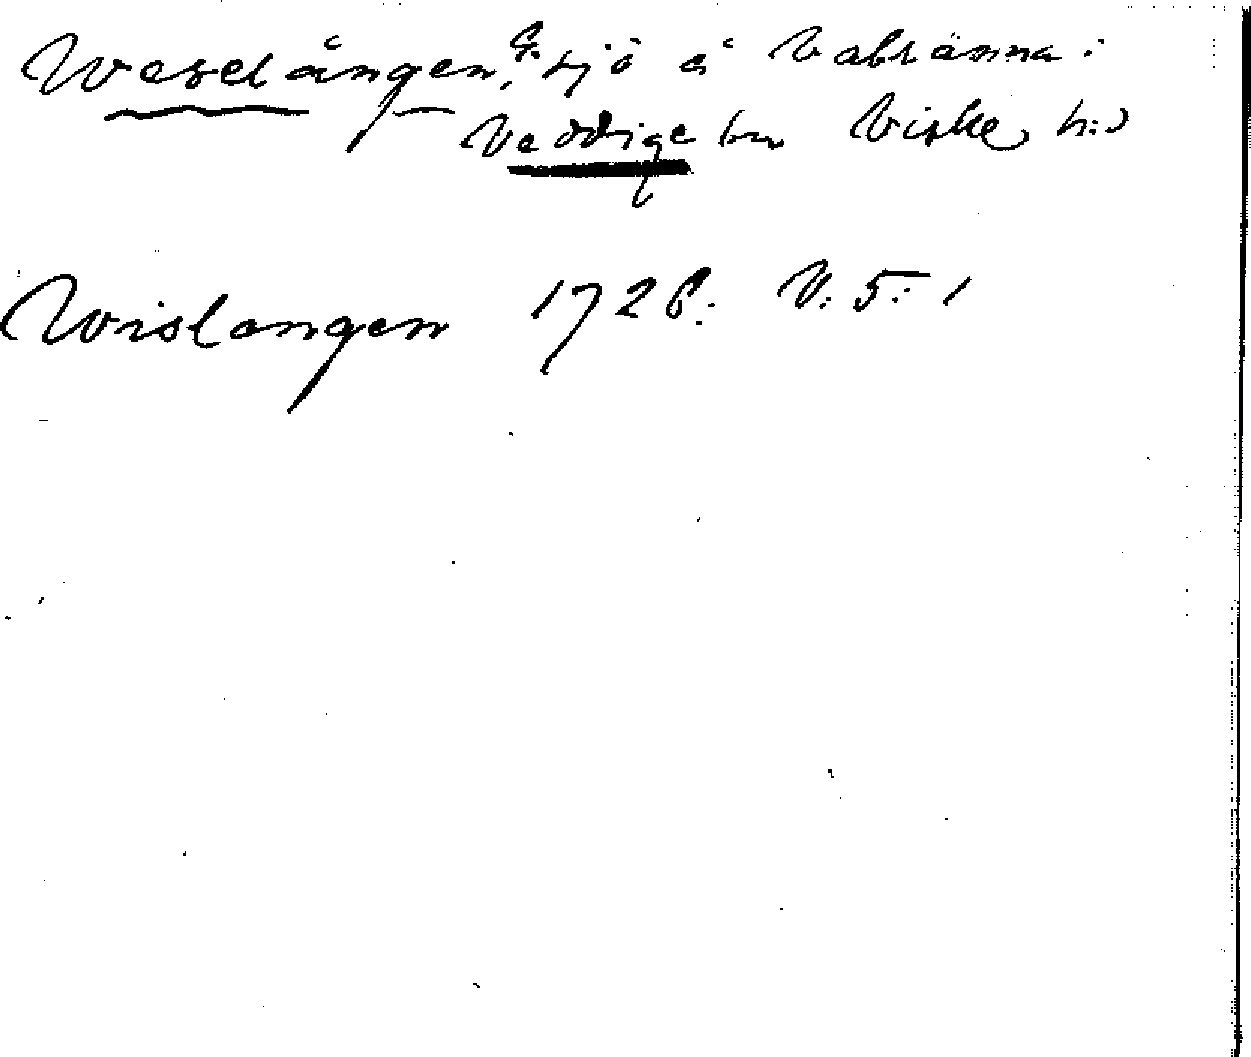 Weselången, sjö å Vabränna i
Veddige sn Viske h:d
Wislangen 1728. V. 5: 1